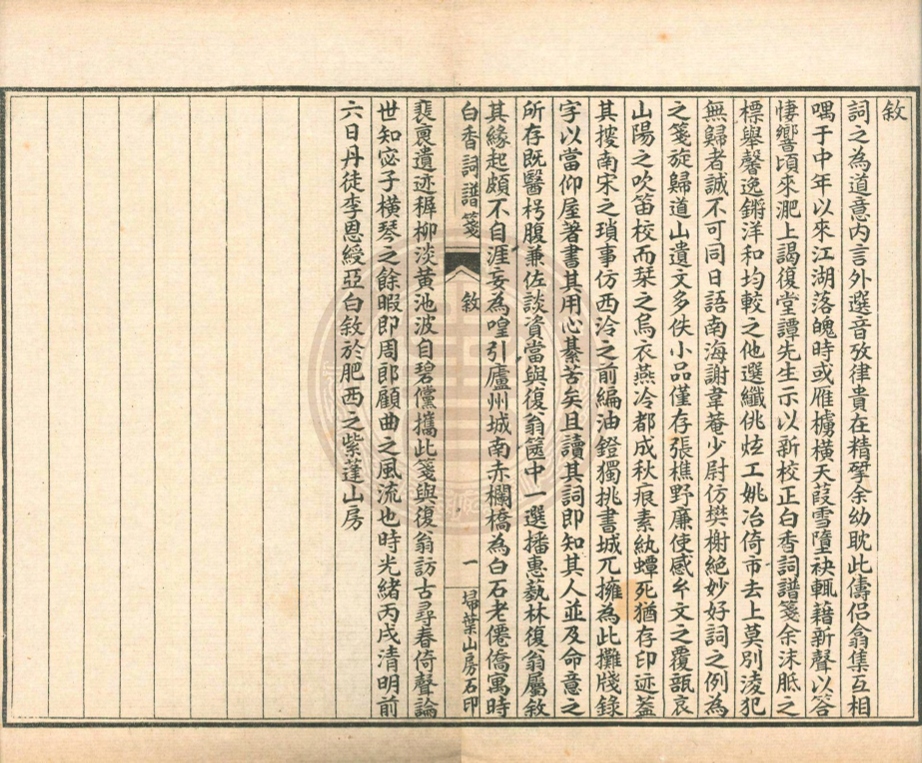 敘
詞之為道意內言外選音攷律貴在精揅余幼耽此儔侶翕集互相
喁于中年以來江湖落魄時或雁櫎橫天葭雪墮袂輒藉新聲以答
悽響頃來淝上謁復堂譚先生示以新校正白香詞譜箋余沫胝之
標舉馨逸鏘洋和均較之他選纖佻炫工姚冶倚市去上莫別淩犯
無歸者誠不可同日語南海謝韋菴少尉仿樊榭絕妙好詞之例為
之箋旋歸道山遺文多佚小品僅存張樵野廉使感乡文之覆瓿哀
山陽之吹笛校而栞之烏衣燕冷都成秋痕素紈蟫死猶存印迹葢
其摉南宋之瑣事仿西泠之前編油鐙獨挑書城兀擁為此攤牋錄
字以當仰屋著書其用心綦苦矣且讀其詞即知其人並及命意之
所存既醫枵腹兼佐談資當與復翁篋中一選播惠蓺林復翁屬敘
其緣起頗不自涯妄為喤引廬州城南赤欄橋為白石老僊僑寓時
白香詞譜箋
敘
一
埽葉山房石印
裵褱遺迹穉柳淡黃池波自碧儻攜此箋與復翁訪古尋春倚聲論
世知宓子橫琴之餘暇即周郎顧曲之風流也時光緒丙戌清明前
六日丹徒李恩綬亞白敘於肥西之紫蓬山房